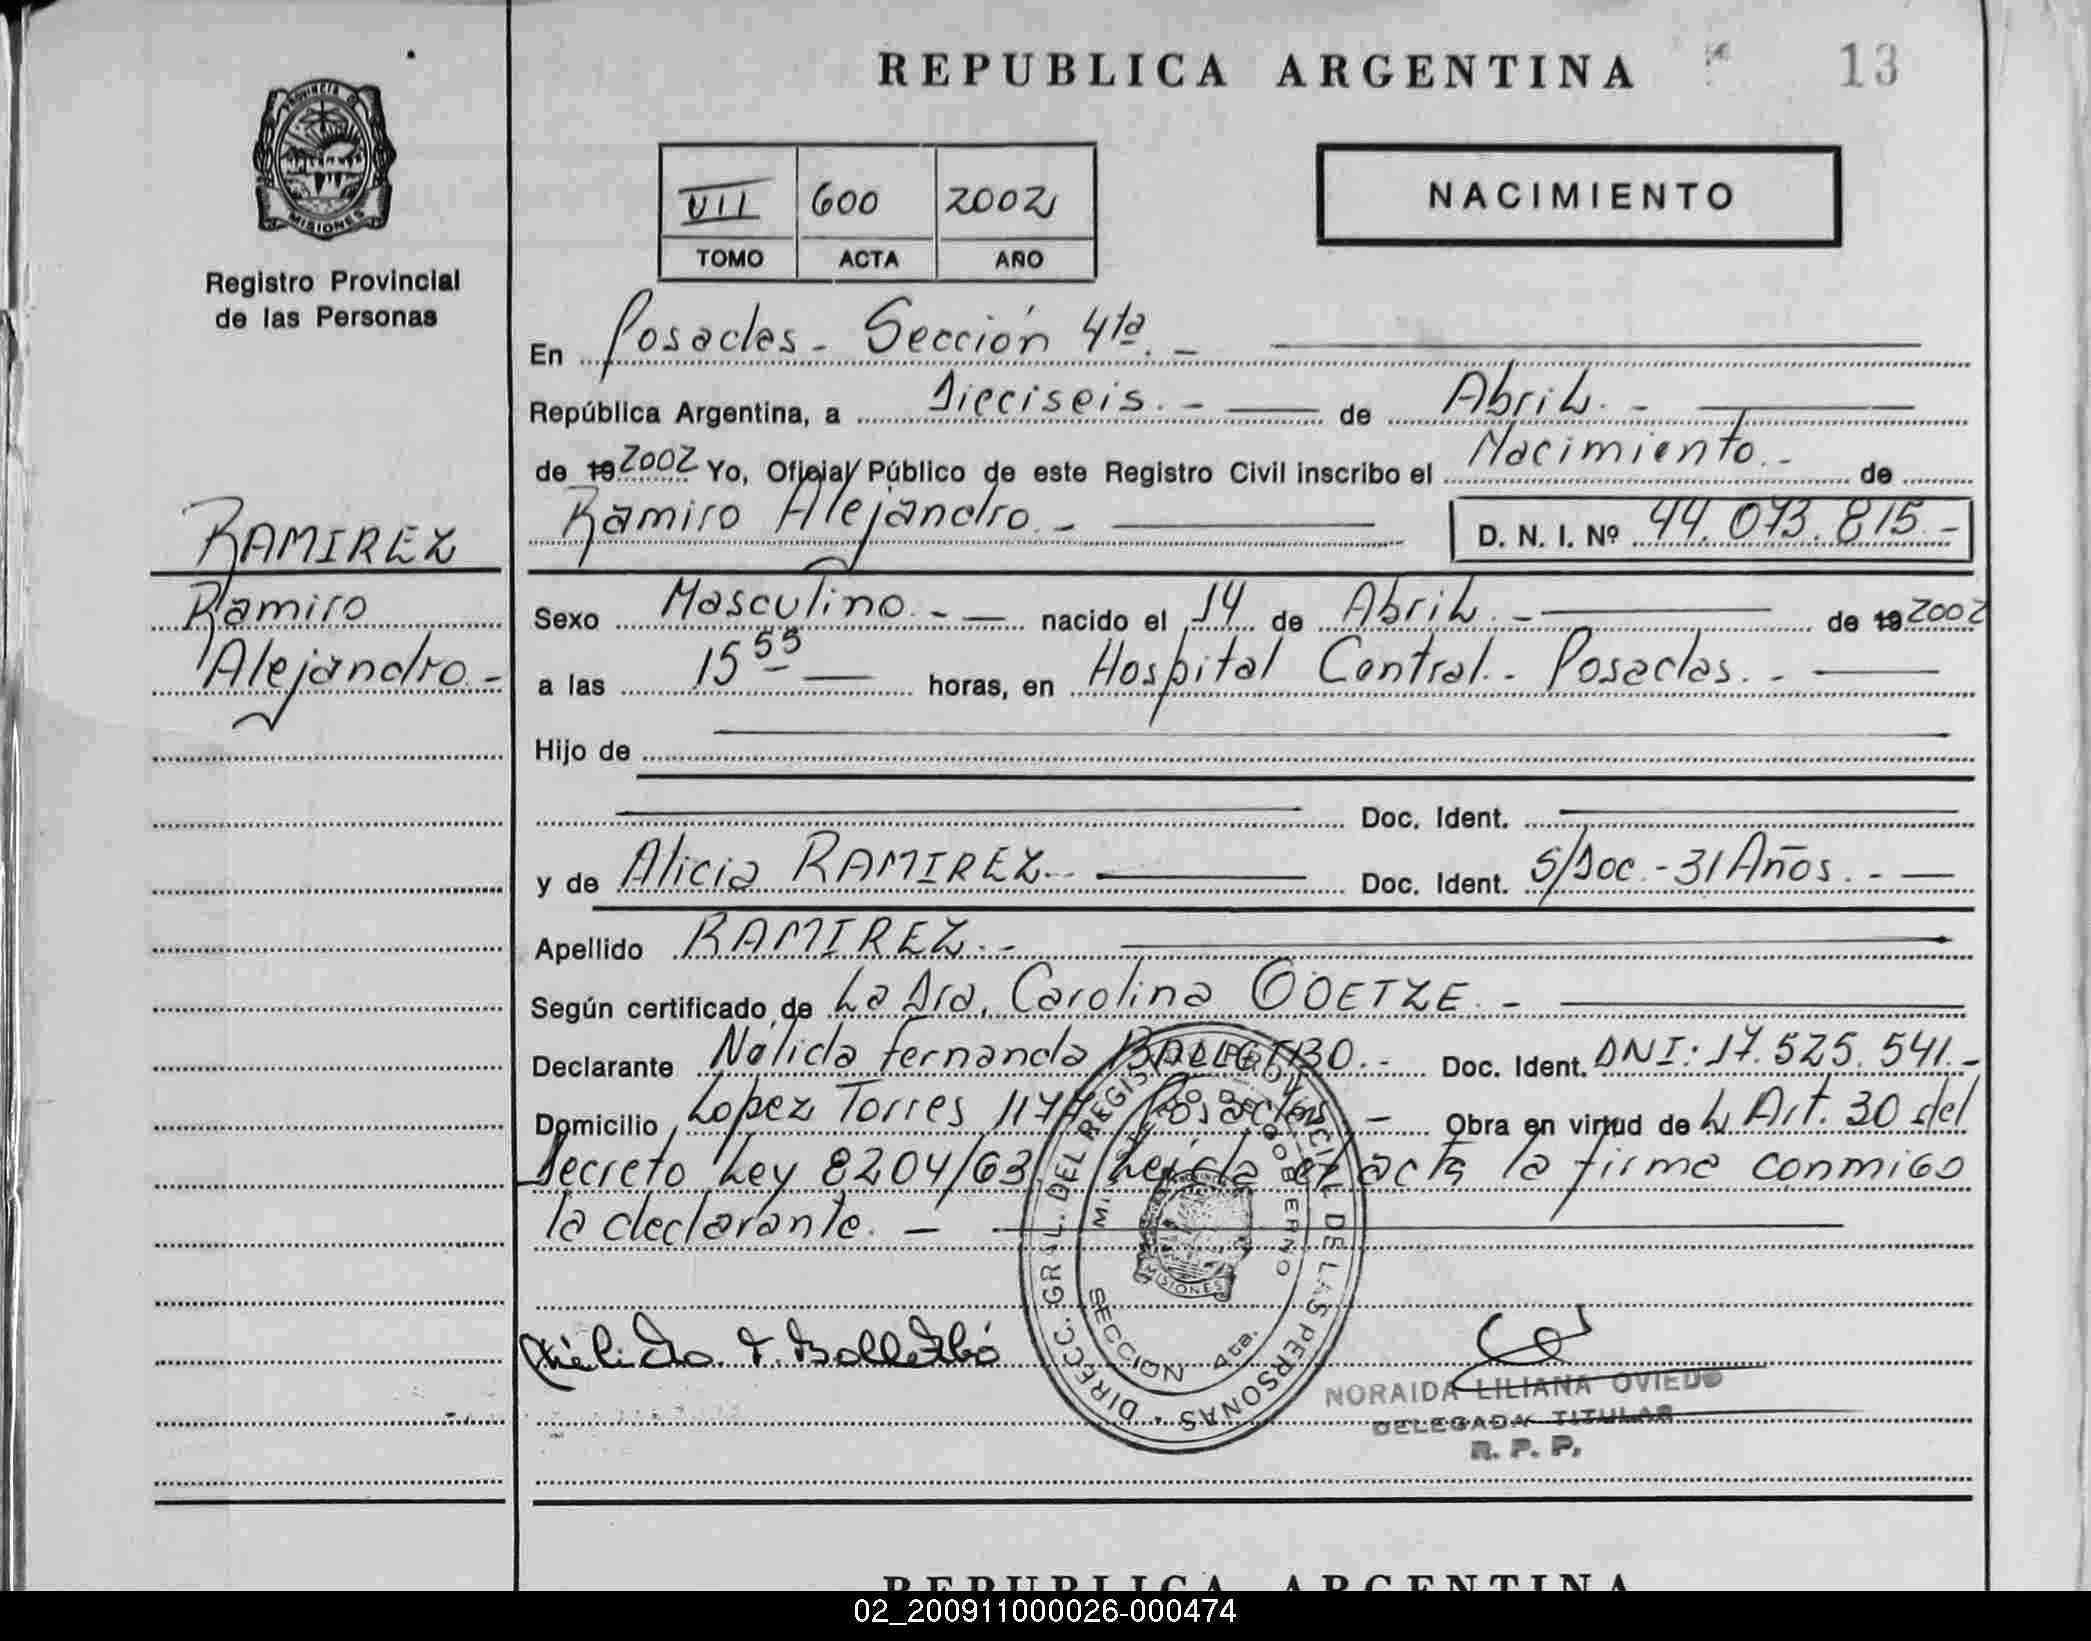 REPUBLICA ARGENTINA
13
PROVINCIA DE
MISIONES
Registro Provincial
de las Personas
VII 600 2002
TOMO ACTA AÑO
NACIMIENTO
En Posadas - Sección 4ta. -
República Argentina, a Dieciseis. - de Abril. -
de 19 2002 Yo, Oficial Público de este Registro Civil inscribo el Nacimiento. - de
Ramiro Alejandro. - D. N. I. Nº 44.073.815. -
RAMIREZ
Ramiro
Alejandro. -
Sexo Masculino. - nacido el 14 de Abril. - de 19 2002
a las 15 55 horas, en Hospital Central. - Posadas. -
Hijo de
Doc. Ident.
y de Alicia RAMIREZ. - Doc. Ident. S/Doc. - 31 Años. -
Apellido RAMIREZ. -
Según certificado de La Dra. Carolina GOETZE. -
Declarante Nélida Fernanda Doc. Ident. DNI: 17.525.541. -
Domicilio Lopez Torres Posadas - Obra en virtud de L Art. 30 del
Decreto Ley 8204/63. Leída el acta la firma conmigo
la declarante. -
DIRECC. GRAL. DEL REGISTRO PROVINCIAL DE LAS PERSONAS
MINISTERIO DE GOBIERNO
MISIONES
SECCION 4ta.
NORAIDA LILIANA OVIEDO
DELEGADA TITULAR
R. P. P.
REPUBLICA ARGENTINA
02_200911000026-000474